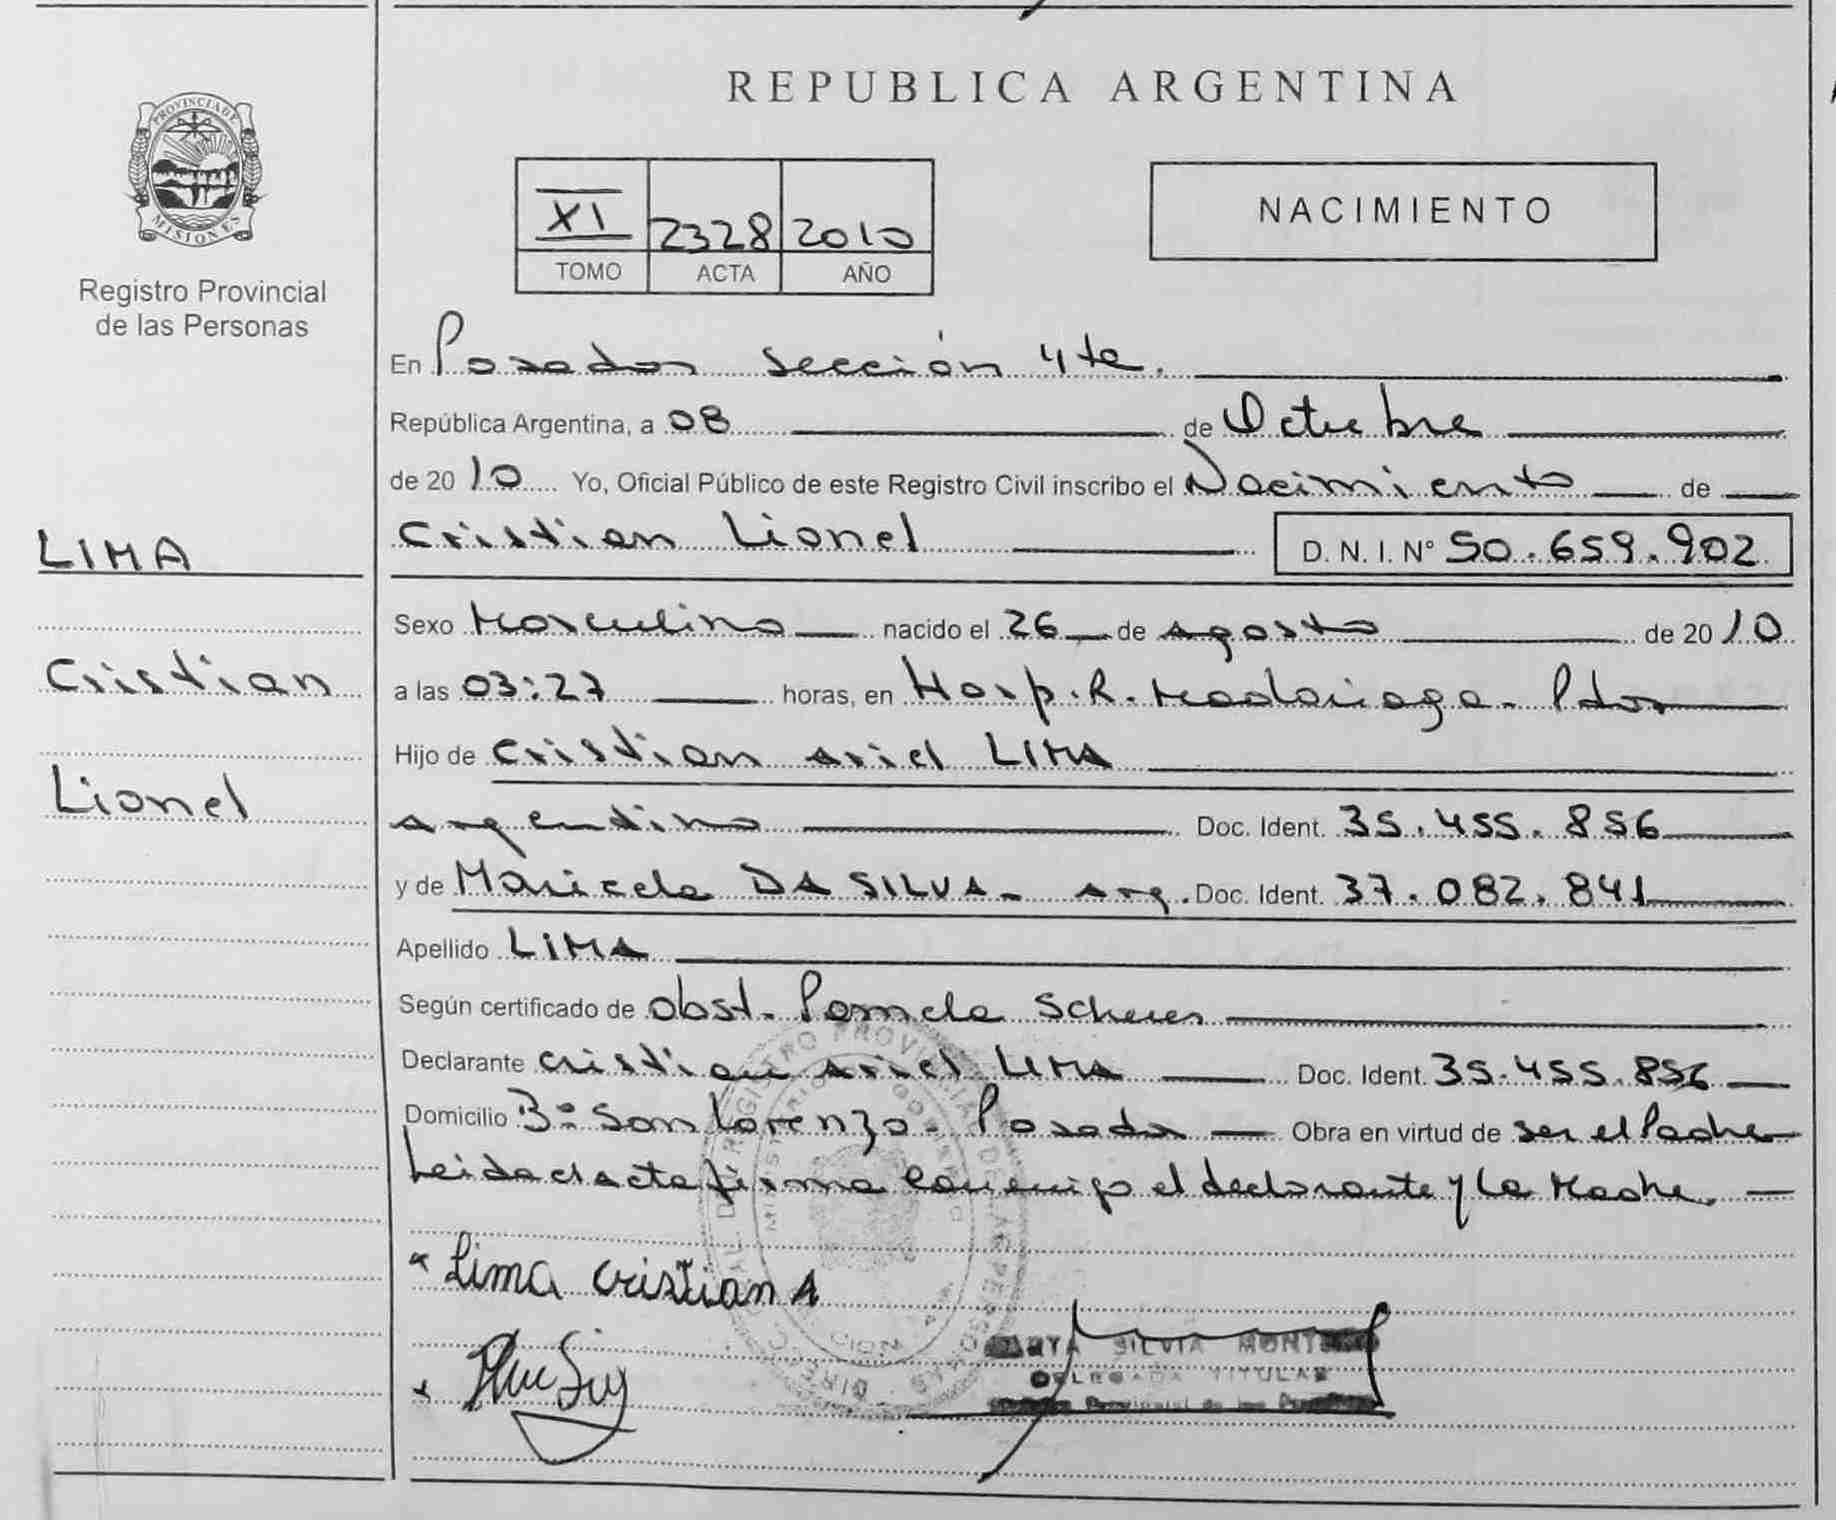 REPUBLICA ARGENTINA
PROVINCIA DE
MISIONES
Registro Provincial
de las Personas
XI 2328 2010
TOMO ACTA AÑO
NACIMIENTO
En Posadas Sección 4ta.
República Argentina, a 08 de Octubre
de 2010 Yo, Oficial Público de este Registro Civil inscribo el Nacimiento de
Cristian Lionel D. N. I. N° 50.659.902
LIMA
Cristian
Lionel
Sexo Masculino nacido el 26 de agosto de 2010
a las 03:27 horas, en Hosp. R. Madariaga - Pdas
Hijo de Cristian Ariel LIMA
Argentino Doc. Ident. 35.455.856
y de Maricela DA SILVA - Arg. Doc. Ident. 37.082.841
Apellido LIMA
Según certificado de obst. Pamela
Declarante Cristian Ariel LIMA Doc. Ident. 35.455.856
Domicilio B° San Lorenzo - Posadas Obra en virtud de ser el Padre
Leida el acta firma conmigo el declarante y la Madre.
Lima Cristian A
SILVIA
DELEGADA TITULAR
Provincial de las